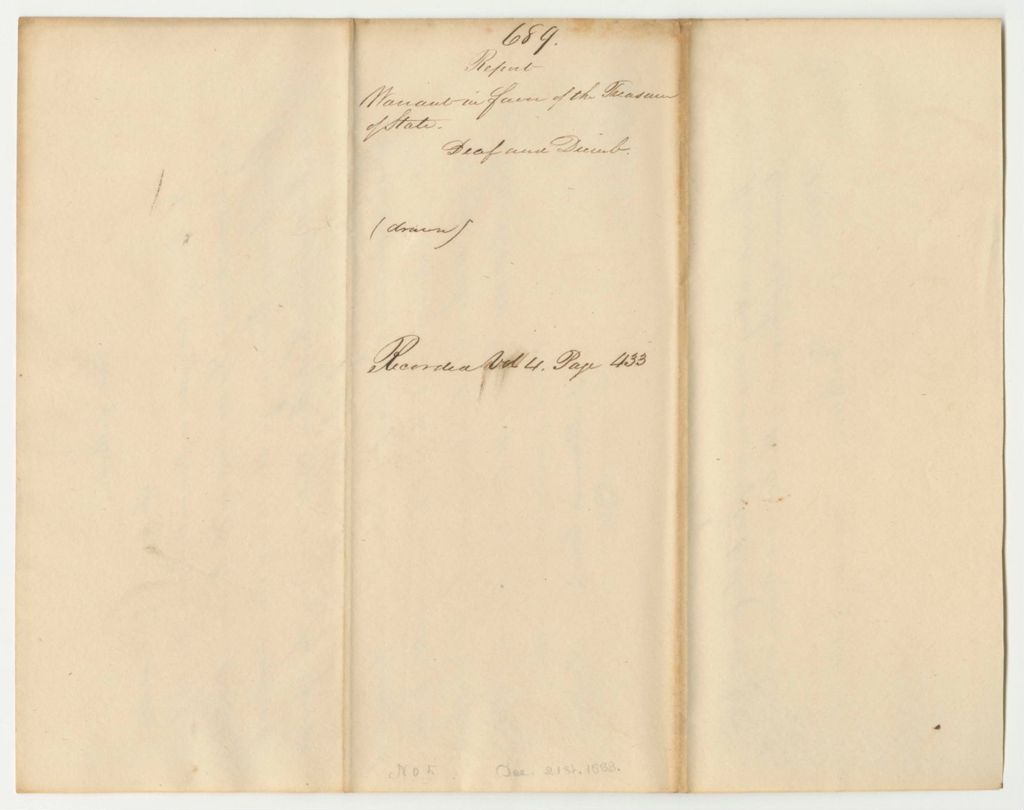 689.
Report
Warrant in favor of the Treasurer
of State.
Deaf and Dumb.
(drawn)
Recorded Vol 4. Page 433
Dec. 21st. 1833.